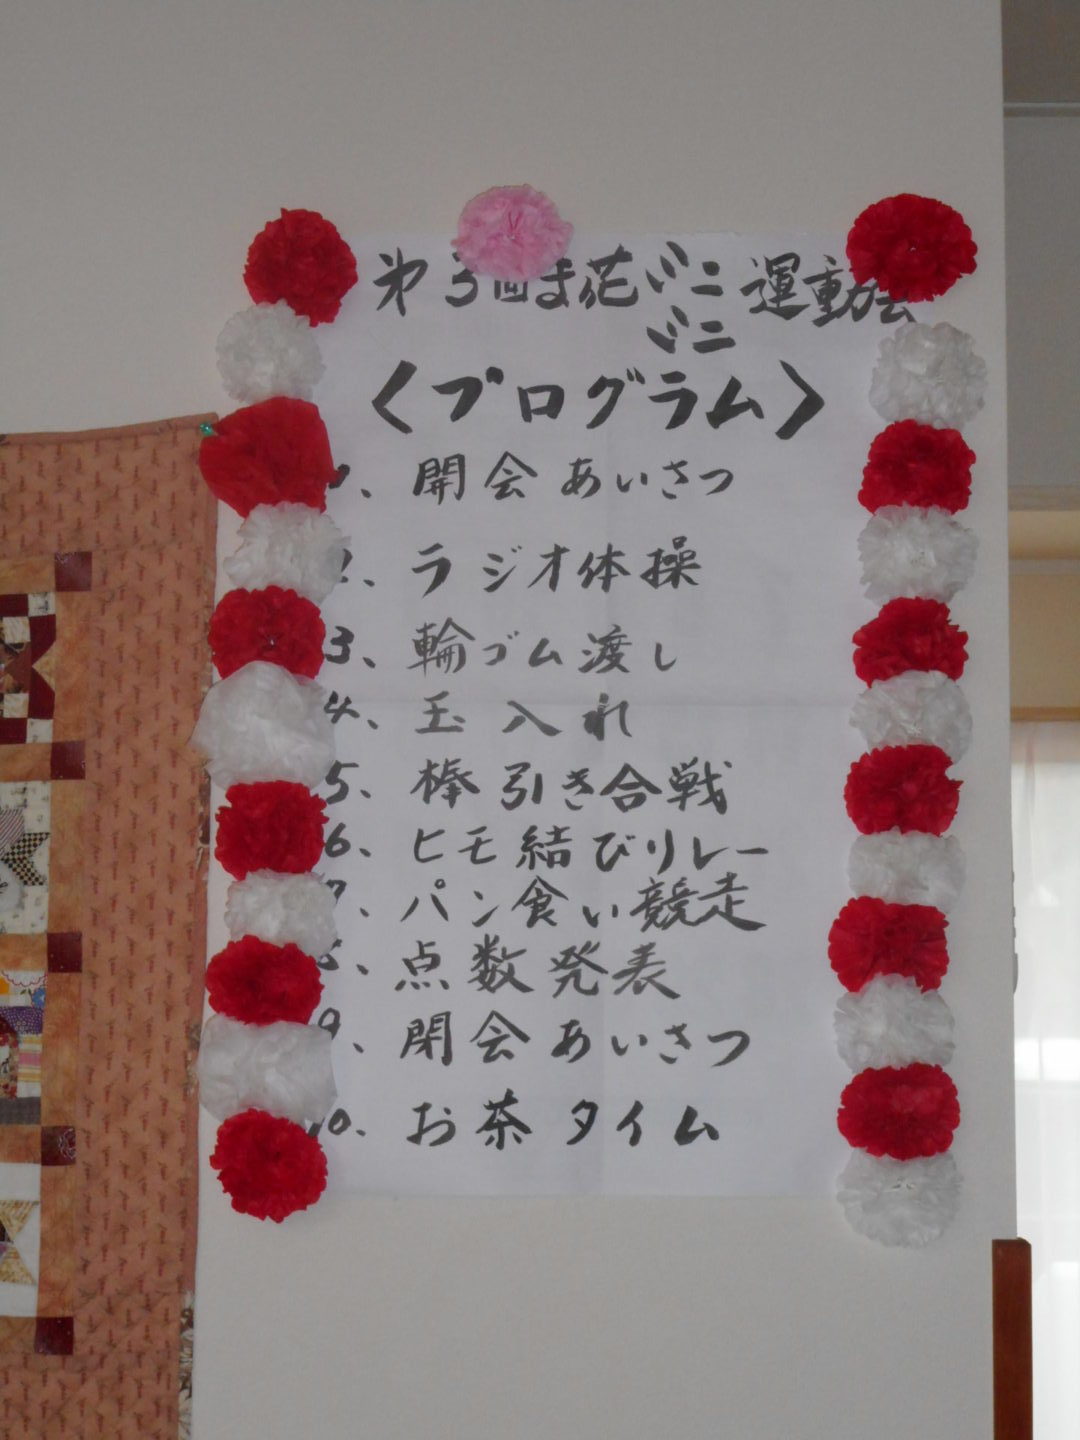 第3回ま花ミニ運動会
ミニ
〈プログラム〉
1、開会あいさつ
2、ラジオ体操
3、輪ゴム渡し
4、玉入れ
5、棒引き合戦
6、ヒモ結びリレー
7、パン食い競走
8、点数発表
9、閉会あいさつ
10、お茶タイム